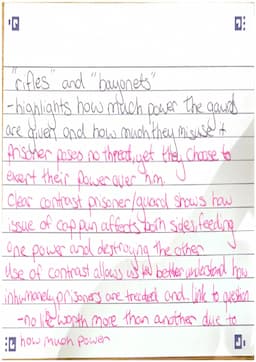 "rifles" and "bayonets"
-highlights how much power the gaurds
are given and how much they misuse it
prisoner poses no threat, yet they choose to
exert their power over him.
Clear contrast prisoner/guard shows how
issue of cap pun affects both sides, feeding
one power and destroying the other
Use of contrast allows us to better understand how
inhumanely prisoners are treated and link to question
-no life worth more than another due to
how much power